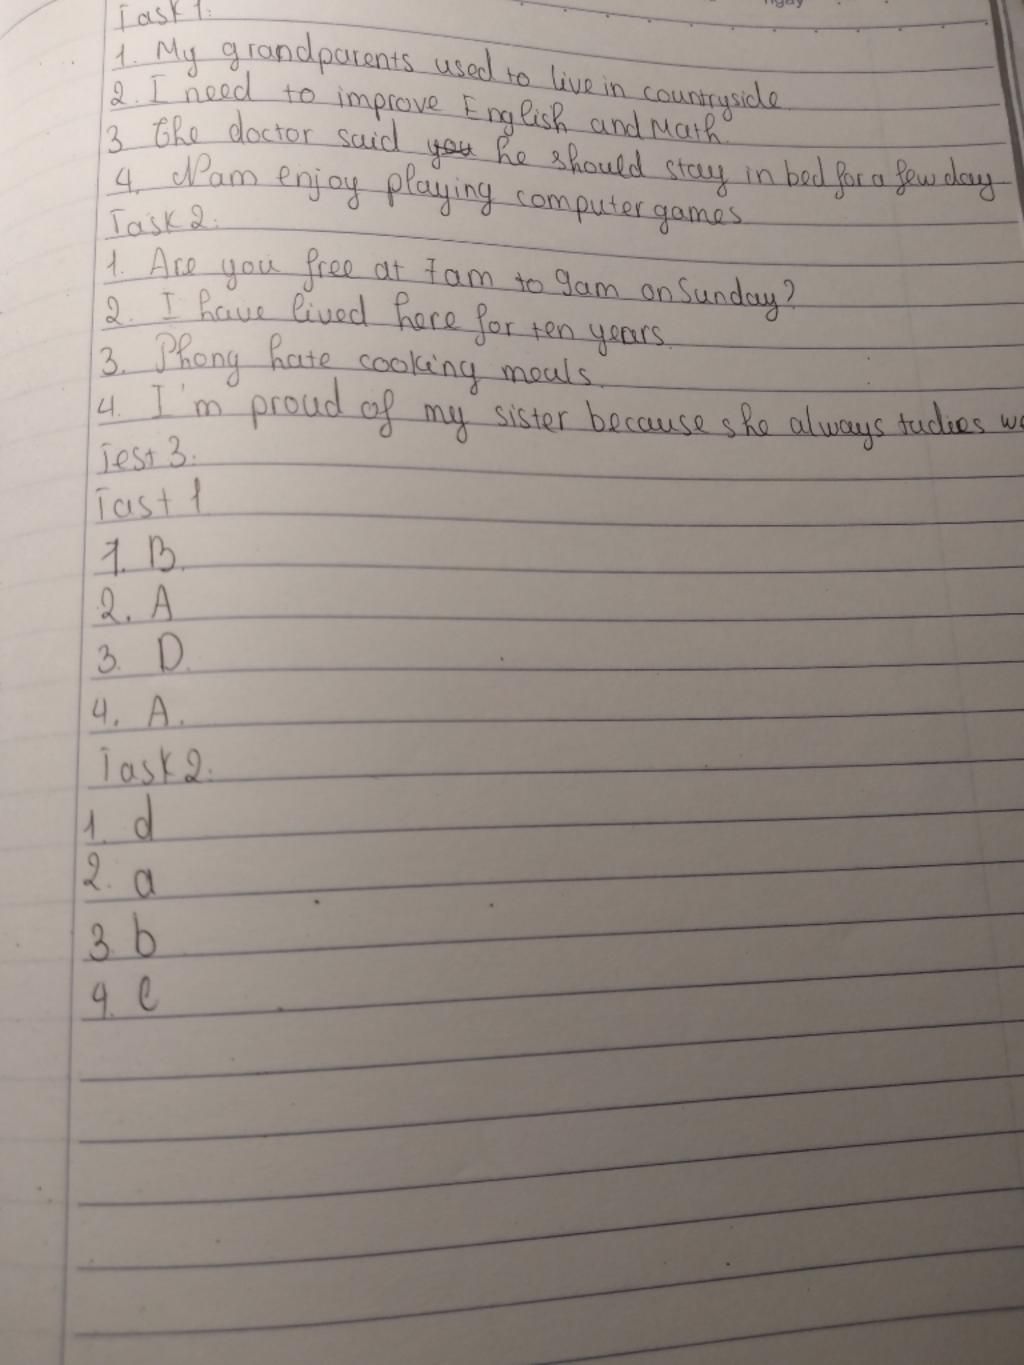 ngày
Task 1:
1. My grandparents used to live in countryside
2. I need to improve English and Math.
3 the doctor said you he should stay in bed for a few day
4. Nam enjoy playing computer games
Task 2:
1. Are you free at 7am to 9am on Sunday?
2. I have lived here for ten years.
3. Phong hate cooking meals.
4. I'm proud of my sister because she always tudies
Test 3:
Tast 1
1. B.
2. A
3. D.
4. A.
Task 2:
1. d
2. a
3. b
4. c